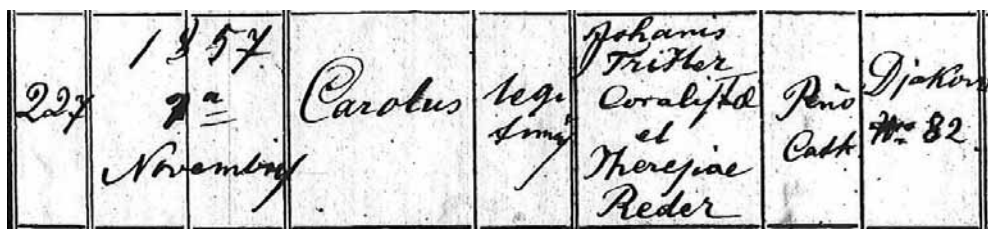 227
1857
2ª
Novembris
Carolus
legi
timus
Johanis
Tritler
Coralistæ
et
Theresiae
Reder
Rëno
Cath.
Djakov
Nro 82